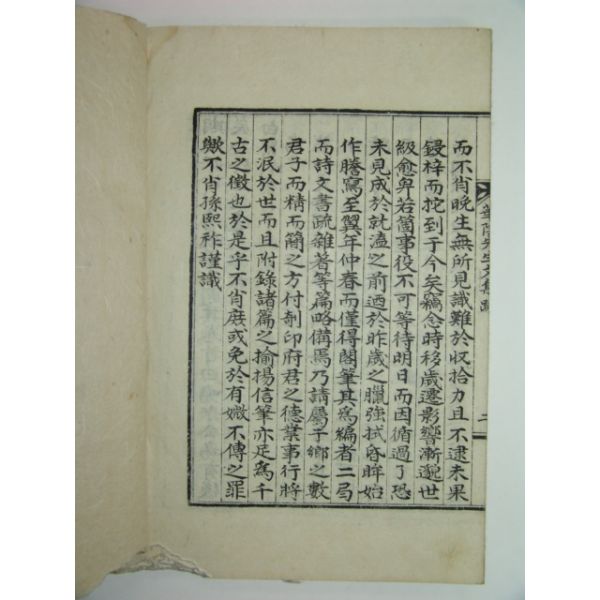 而不肖晩生無所見識難於収拾力且不逮未果
鋟梓而拕到于今矣竊念時移歳遷影響漸邈世
級愈卑若箇事役不可等待明日而因循過了恐
未見成於就溘之前迺於昨歳之臘強拭昏眸始
作謄寫至翼年仲春而僅得閣筆其爲編者二局
而詩文書疏雜著等篇略備焉乃請屬于鄕之數
君子而精而簡之方付剞印府君之德業事行將
不泯於世而且附錄諸篇之揄揚信筆亦足爲千
古之徵也於是乎不肖庶或免於有媺不傳之罪
歟不肖孫熙祚謹識
先生文集
二